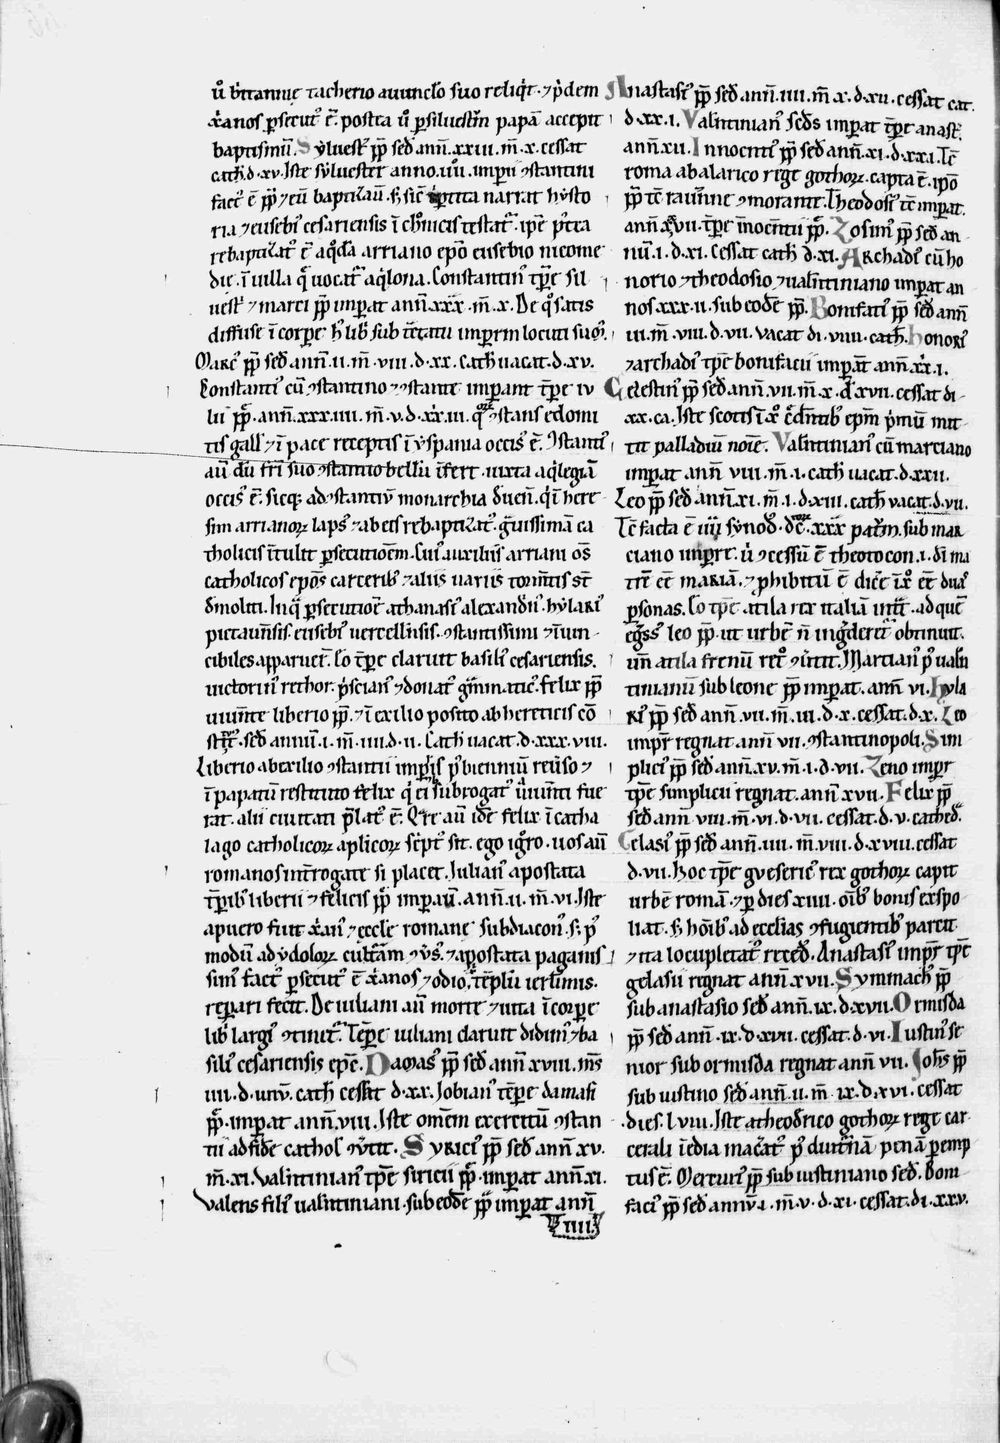 ũ b̾ritannię tacherio auunclo̾ suo reliq̾t · ⁊ p̾dem
xp̄anos ꝑsecut᷒ ē. postea ũ ꝑ siluestrū papā accepit
baptismū. Syluest᷒ pp̄ sed̾ annī. xxiii. m̄. x. cessat
cath̾. d. xv. Iste syluester anno. iiii. imperii ꝯstantini
fact᷒ ē pp̄ ⁊ eū baptizauī. S; sic̄ tripertita narrat hysto
ria ⁊ euseb᷒ cesariensis ī cħnicis testat᷒. ipse p̾tea
rebaptizat᷒ ē aq̾da arriano epō eusebio nicome
die ī uilla q̄ uocat᷒ aqlona. Constantin᷒ tp̄e sil
uest᷒ ⁊ marci pp̄ imperat annī. xxx. m̄. x. De q̾ satis
diffuse ī corpe h᷒ lib̾ sub t̄ctatu imp̄rm locuti sum᷒.
Marc᷒ pp̄ sed̾ annī. ii. m̄. viii. d. xx. cath̾ uacat. d. xv.
Constanti᷒ cū ꝯstantino ⁊ ꝯstante imperant tp̄e iu
lii pp̄. annī. xxx. iiii. m̄. v. d. xx. iii. q̾ꝝ ꝯstans edomi
tis gall᷒ ⁊ ī pace receptis ī yspania occis᷒ ē. ꝯstanti᷒
aū dū fr̄i suo ꝯstantio bellū ifert · iuxta aq̾legiā
occis᷒ ē. sicq; ad ꝯstantiū monarchia deuen̄. q̾ ī here
sim arrianoꝝ laps᷒ ⁊ ab eis rebaptizat᷒. grauissimā ca
tholicis ītulit ꝑsecutionē. Cui᷒ auxiliis arriani oēs
catholicos epōs carcerib᷒ ⁊ aliis uariis tormētis st̄
demoliti. In q̄ ꝑsecutione athanasi᷒ alexandrin᷒. hylari᷒
pictauensis. eusebi᷒ uercellensis. ꝯstantissimi ⁊ inuin
cibiles apparuer̄. Eo tp̄e claruit basili᷒ cesariensis.
uictorin᷒ rethor. p̾scian᷒ ⁊ donat᷒ gramatic᷒. felix pp̄
uiuente liberio pp̄. ⁊ ī exilio posito ab hereticis cō
stit᷒. sed̾ annū. i. m̄. iiii. d. ii. Cath̾ uacat. d. xxx. viii.
Liberio ab exilio ꝯstantii imp̄ris p᷒ bienniū reuso ⁊
ī papatū restituto felix q̾ ei subrogat᷒ uiuenti fue
rat. alii ciuitati p̄lat᷒ ē. Q̄re aū idē felix ī catha
lago catholicoꝝ aplicoꝝ sc̄pt᷒ sit. ego ignoro. uos aū
romanos interrogate si placet. Iulian᷒ apostata
tp̄ib᷒ liberii ⁊ felicis pp̄ imperauit. annī. ii. m̄. vi. Iste
a puero fuit xp̄ian᷒ ⁊ eccle romane subdiacon᷒. s; p᷒
modū ad ydoloꝝ cultū ꝯuers᷒. ⁊ apostata paganis
sim᷒ fact᷒ ꝑsecut᷒ ē xp̄anos ⁊ odio ꝉ templū ierlimis.
repari fecit. De iuliani aū morte ⁊ uita ī corpe
lib̾ larg᷒ ꝯtinet᷒. Tempe iuliani claruit didim᷒ ⁊ ba
sili᷒ cesariensis epc̄. Damas᷒ pp̄ sed̾ annī xviii. m̄s
iiii. d. unū. cath̾ cessat d. xx. Iobian᷒ tempe damasi
pp̄. imperat annī. viii. Iste omēm exercitū ꝯstan
tii ad fidē cathol ꝯuertit. Syrici᷒ pp̄ sed̾ annī xv.
m̄. xi. Valentinian᷒ tp̄e siricii pp̄. imperat annī. xi.
Valens fili᷒ ualentiniani. sub eodē pp̄ imperat annī
iiii.
Anastasi᷒ pp̄ sed̾ annī. iiii. m̄. x. d. xii. cessat cat.
d. xx. i. Valentinian᷒ sed̾s imperat tp̄e anast᷒.
annī. xii. Innocenti᷒ pp̄ sed̾ annī. xi. d. xxi. Tc̄
roma ab alarico rege gothoꝝ. capta ē. ipō
pp̄ tc̄ rauenne ꝯmorante. Theodosi᷒ tc̄ imperat.
annī. xvii. tp̄e innocentii pp̄. Zosim᷒ pp̄ sed̾ an
nū. i. d. xi. cessat cath̾ d. xi. Archadi᷒ cū ho
norio ⁊ theodosio ⁊ ualentiniano imperat an
nos xxx. ii. sub eodē pp̄. Bonifati᷒ pp̄ sed̾ annī
iii. m̄. viii. d. vii. vacat di. viiii. cath̾. honori᷒
⁊ archadi᷒ tp̄e bonifacii imperāt annī. xx. i.
Celestin᷒ pp̄ sed̾ annī. vii. m̄. x. d. xvii. cessat di
xx. ca. Iste scotis ī xp̄o c̄dentib᷒ epm̄ p̾mū mit
tit palladiū noīe. Valentinian᷒ cū marciano
imperat annī viii. m̄. i. cath̾ uacat. d. xxii.
Leo pp̄ sed̾ annī. xi. m̄. i. d. xiii. cath̾ vacat. d. vii.
Tc̄ facta ē iiii synod᷒. dc̄ xxx patrū. sub mar
ciano imperat. ũ ꝯcessū ē theotocon. i. di ma
trē ee̅ mariā. ⁊ phibitū ē dicē xp̄o ee̅ duas
ꝑsonas. Eo tp̄e atila rex italiā intrat. ad quē
egress᷒ leo pp̄. ut urbē n̄ ingrederet᷒ obtinuit.
un̄ atila frenū retro ꝯuertit. Martian᷒ p᷒ valen
tinianū sub leone pp̄ imperat. annī vi. Hyla
ri᷒ pp̄ sed̾ annī. vii. m̄. iii. d. x. cessat. d. x. Leo
impr̄ regnat annī vii. ꝯstantinopoli. Sim
plici᷒ pp̄ sed̾ annī. xv. m̄. i. d. vii. Zeno imper
tp̄e simplicii regnat. annī xvii. Felix pp̄
sed̾ annī viii. m̄. vi. d. vii. cessat. d. v. cathed̾.
Gelasi᷒ pp̄ sed̾ annī. iiii. m̄. viii. d. xviii. cessat
d. vii. Hoc tp̄e gueseric᷒ rex gothoꝝ capit
urbē romā. ⁊ p dies xiiii. oīb᷒ bonis expo
liat. s; hōib᷒ ad ecclias ꝯfugientib᷒ parcit
⁊ ita locupletat᷒ recedit. Anastasi᷒ impr̄ tp̄e
gelasii regnat annī xvii. Symmach᷒ pp̄
sub anastasio sed̾ annī. ix. d. xvii. Ormisda
pp̄ sed̾ annī. ix. d. xvii. cessat. d. vi. Iustin᷒ se
nior sub ormisda regnat annī vii. Iohs̄ pp̄
sub iustino sed̾ annī. ii. m̄. ix. d. xvi. cessat
dies. l viii. Iste a theodrico gothoꝝ rege car
cerali inedia macerat᷒ p᷒ diutinā penā ꝑemp
tus ē. Mercuri᷒ pp̄ sub iustiniano sed̾. Boni
faci᷒ pp̄ sed̾ annū. i. m̄. v. d. xi. cessat. di. xxv.